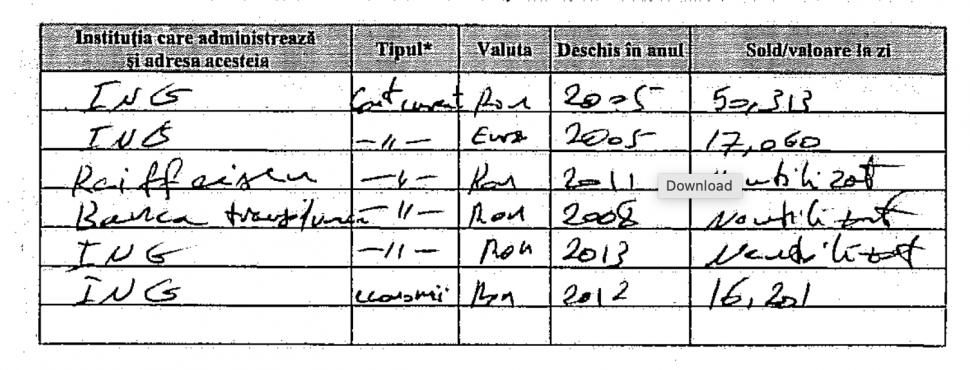 Instituția care administrează și adresa acesteia | Tipul* | Valuta | Deschis în anul | Sold/valoare la zi
ING | Cont curent | Ron | 2005 | 50,313
ING | —//— | Euro | 2005 | 17,060
Raiffeisen | —//— | Ron | 2011 | Neutilizat
Banca transilvania | —//— | Ron | 2008 | Neutilizat
ING | —//— | Ron | 2013 | Neutilizat
ING | economii | Ron | 2012 | 16,201
Download